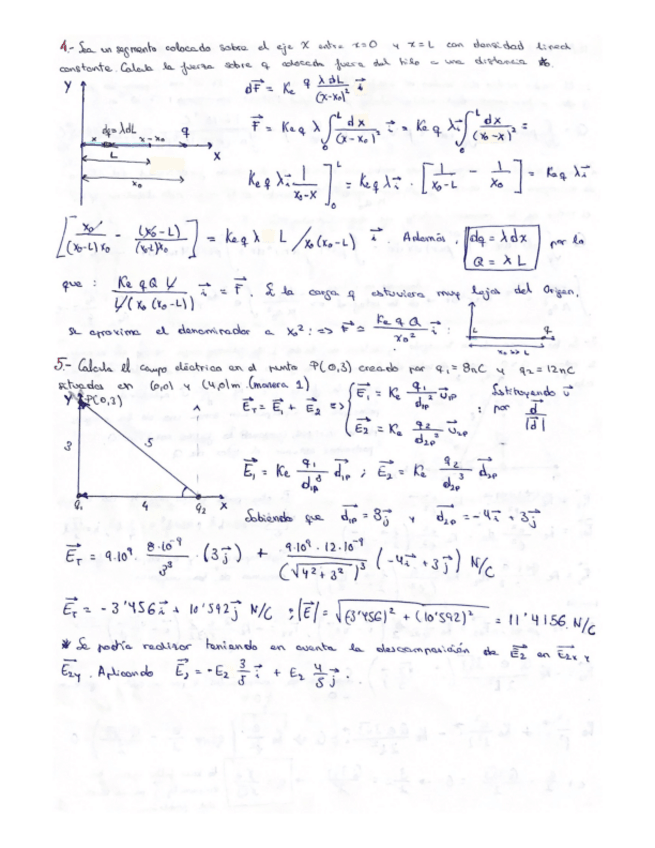 4.- Sea un segmento colocado sobre el eje X entre x=0 y x=L con densidad lineal
constante. Calcula la fuerza sobre q colocada fuera del hilo a una distancia x₀.
Y
dF⃗ = Ke q λdL/(x-x₀)² i⃗
F⃗ = Ke q λ ∫₀ᴸ dx/(x-x₀)² i⃗ = Ke q λ i⃗ ∫₀ᴸ dx/(x₀-x)² =
x dq=λdL x-x₀ q
L X
x₀
Ke q λ i⃗ 1/(x₀-x) ]₀ᴸ = Ke q λ i⃗ · [1/(x₀-L) - 1/x₀] = Ke q λ i⃗
[x₀/(x₀-L)x₀ - (x₀-L)/(x₀-L)x₀] = Ke q λ L/x₀(x₀-L) i⃗. Además, dq = λdx por lo
Q = λL
que : Ke q Q L/L(x₀(x₀-L)) i⃗ = F⃗. Si la carga q estuviera muy lejos del Origen,
se aproxima el denominador a x₀²: => F⃗ ≃ Ke q Q/x₀² i⃗ : L q
x₀ >> L
5.- Calcula el campo eléctrico en el punto P(0,3) creado por q₁ = 8nC y q₂ = 12nC
situados en (0,0) y (4,0)m. (manera 1)
Y P(0,3)
E⃗T = E⃗₁ + E⃗₂ => { E⃗₁ = Ke q₁/d₁p² u⃗₁p : Sustituyendo u⃗
E⃗₂ = Ke q₂/d₂p² u⃗₂p por d⃗/|d⃗|
3 5
E⃗₁ = Ke q₁/d₁p³ d⃗₁p ; E⃗₂ = Ke q₂/d₂p³ d⃗₂p
q₁ 4 q₂ X
Sabiendo que d⃗₁p = 3j⃗ y d⃗₂p = -4i⃗ + 3j⃗
E⃗T = 9·10⁹ · 8·10⁻⁹/3³ · (3j⃗) + 9·10⁹ · 12·10⁻⁹/(√4²+3²)³ (-4i⃗ + 3j⃗) N/C
E⃗T = -3'456i⃗ + 10'592j⃗ N/C ; |E⃗| = √(3'456)² + (10'592)² = 11'4156 N/C
* Se podría realizar teniendo en cuenta la descomposición de E⃗₂ en E⃗₂x y
E⃗₂y. Aplicando E⃗₂ = -E₂ 3/5 i⃗ + E₂ 4/5 j⃗ :